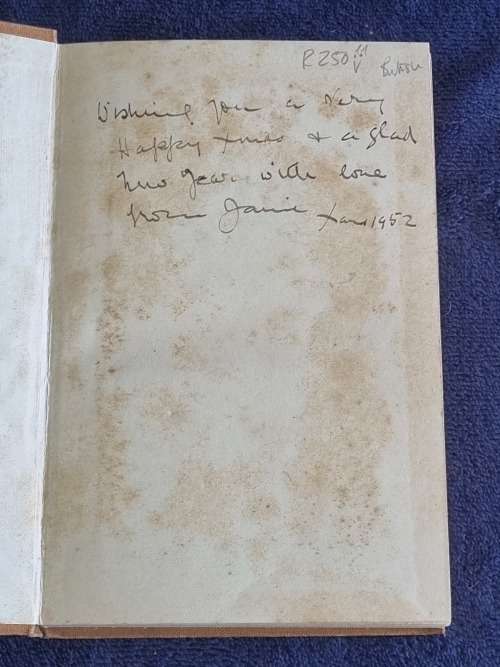 R250
Wishing you a Very
Happy Xmas & a glad
New Year with love
from Janie Xmas 1952